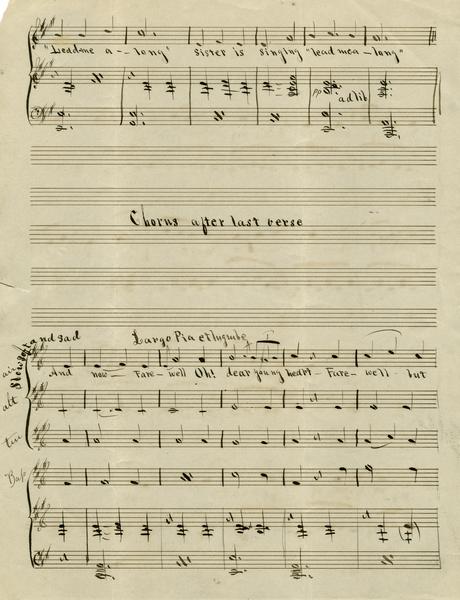 "Lead me a - - long" sister is singing "lead me a - long"
pp ad lib
Chorus after last verse
Slow and sad Largo Pia et lugubre
air And now - Fare - well Oh! dear young heart - Fare - well - but
alt
ten
Bass